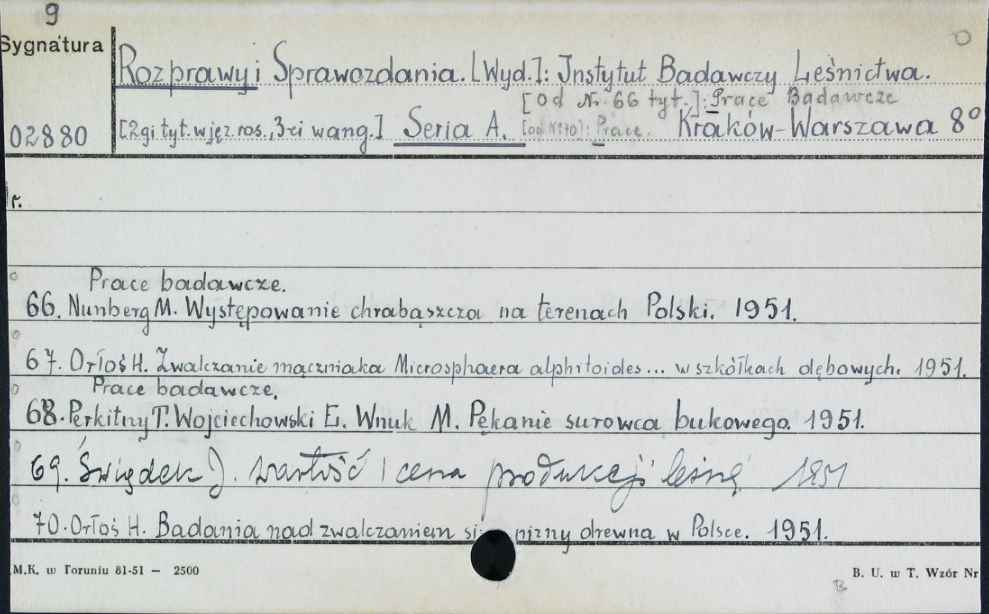 9
Sygnatura
Rozprawy i Sprawozdania. [Wyd.]: Instytut Badawczy Leśnictwa.
[od Nr 66 tyt.]: Prace Badawcze
02880
[2gi tyt. w jęz. ros., 3-ci w ang.] Seria A. [od Nr 70]: Prace. Kraków-Warszawa 8°
r.
Prace badawcze.
66. Nunberg M. Występowanie chrabąszcza na terenach Polski. 1951.
67. Orłoś H. Zwalczanie mączniaka Microsphaera alphitoides... w szkółkach dębowych. 1951.
Prace badawcze.
68. Perkitny T. Wojciechowski E. Wnuk M. Pękanie surowca bukowego. 1951.
69. Świąder J. Wartość i cena produkcji leśnej 1951
70. Orłoś H. Badania nad zwalczaniem si nizny drewna w Polsce. 1951.
M.K. w Toruniu 81-51 — 2500
B. U. w T. Wzór Nr
B